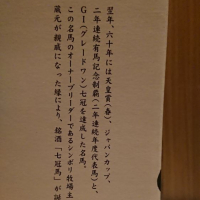 翌年、六十年には天皇賞(春)、ジャパンカップ、
二年連続有馬記念制覇(二年連続年度代表馬)と、
GI(グレードワン)七冠を達成した名馬。
この名馬のオーナーブリーダーであるシンボリ牧場主
蔵元が親戚になった縁により、銘酒「七冠馬」が誕